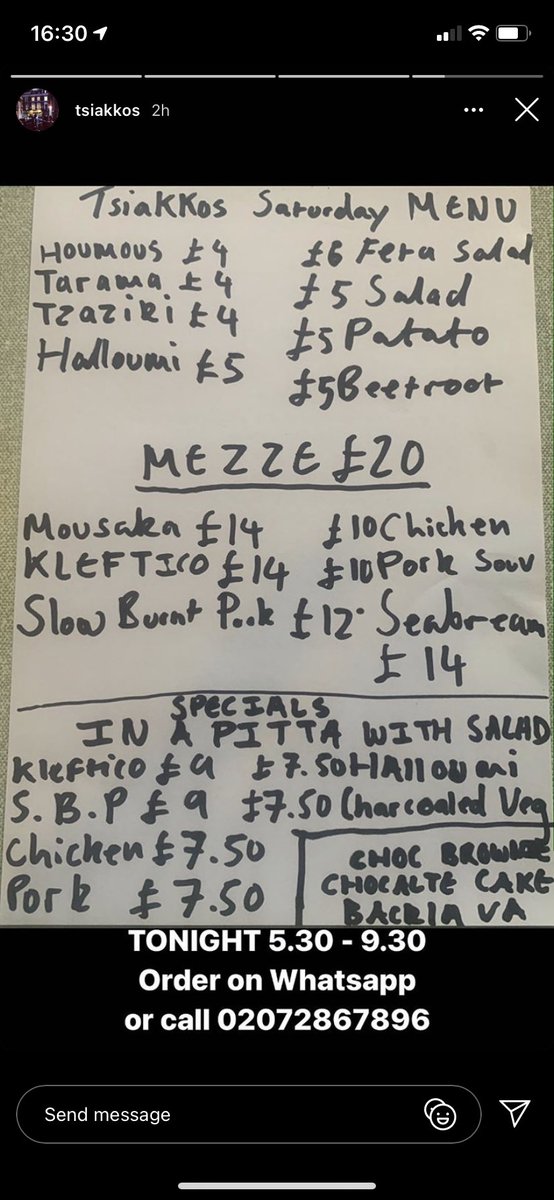 16:30
tsiakkos 2h
Tsiakkos Saturday MENU
HOUMOUS £4 £6 Feta Salad
Tarama £4 £5 Salad
Tzaziki £4 £5 Patato
Halloumi £5 £5 Beetroot
MEZZE £20
Mousaka £14 £10 Chicken
KLEFTICO £14 £10 Pork Souv
Slow Burnt Pork £12 Seabream
£14
SPECIALS
IN A PITTA WITH SALAD
Kleftico £9 £7.50 HAllOumi
S.B.P £9 £7.50 Charcoaled Veg
Chicken £7.50
Pork £7.50
CHOC BROWNIE
CHOCALTE CAKE
BACKLA VA
TONIGHT 5.30 - 9.30
Order on Whatsapp
or call 02072867896
Send message